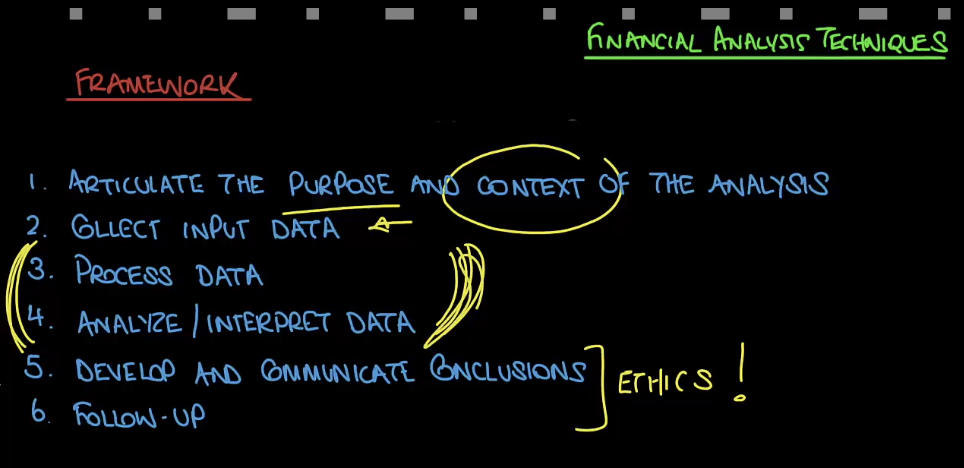 FINANCIAL ANALYSIS TECHNIQUES
FRAMEWORK
1. ARTICULATE THE PURPOSE AND CONTEXT OF THE ANALYSIS
2. COLLECT INPUT DATA
3. PROCESS DATA
4. ANALYZE/INTERPRET DATA
5. DEVELOP AND COMMUNICATE CONCLUSIONS
ETHICS!
6. FOLLOW-UP